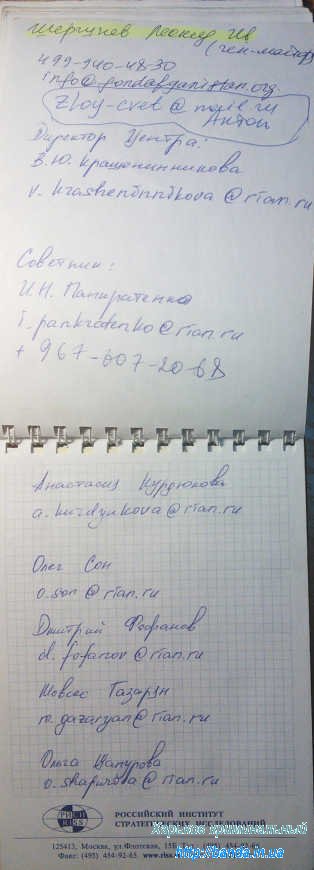 Шершнев Леонид Ив
(ген-майор)
499-940-48-30
info@fondafganistan.org
zloy-cvet@mail.ru
Антон
Директор Центра:
В.Ю. Крашенинникова
v.krasheninnikova@rian.ru
Советник:
И.Н. Панкратенко
i.pankratenko@rian.ru
+ 967-607-20-68
Анастасия Курдюкова
a.kurdyukova@rian.ru
Олег Сон
o.son@rian.ru
Дмитрий Фофанов
d.fofanov@rian.ru
Мовсес Газарян
m.gazaryan@rian.ru
Ольга Шапурова
o.shapurova@rian.ru
РИСИ
RISS
РОССИЙСКИЙ ИНСТИТУТ
СТРАТЕГИЧЕСКИХ ИССЛЕДОВАНИЙ
125413, Москва, ул.Флотская, 15Б (495) 454-92-65
Факс: (495) 454-92-65 www.riss
Харьков криминальный
http://banda.in.ua